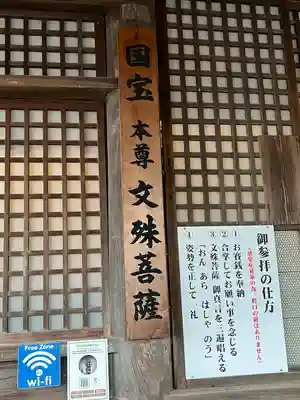 国宝 本尊 文殊菩薩
御参拝の仕方
①お賽銭を奉納
②合掌してお願い事を念じる
③文殊菩薩 御真言を三遍唱える
「おん あら はしゃ のう」
①姿勢を正して 礼
Free Zone
wi-fi